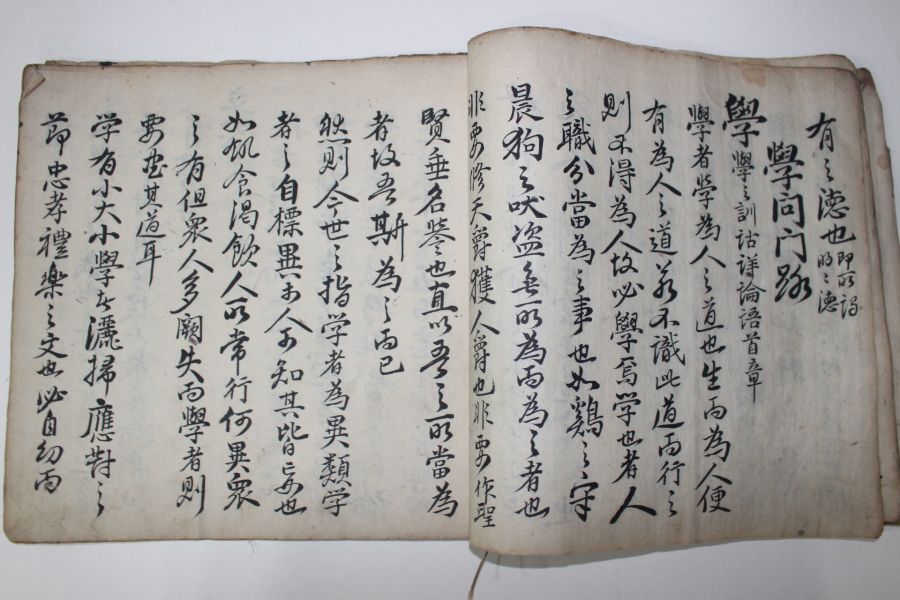 有之德也即所謂
明之德
學問門路
學學之訓詁詳論語首章
學者学為人之道也生而為人便
有為人之道若不識此道而行之
則不得為人故必學焉学也者人
之職分當為之事也如鷄之司
晨狗之吠盗無所為而為之者也
非要修天爵獲人爵也非要作聖
賢垂名譽也直以吾之所當為
者故吾斯為之而已
然則今世之指学者為異類学
者之自標異於人不知其皆妄也
如飢食渴飲人所常行何異衆
之有但衆人多闕失而學者則
要盡其道耳
学有小大小學在灑掃應對之
節忠孝禮樂之文也必自幼而